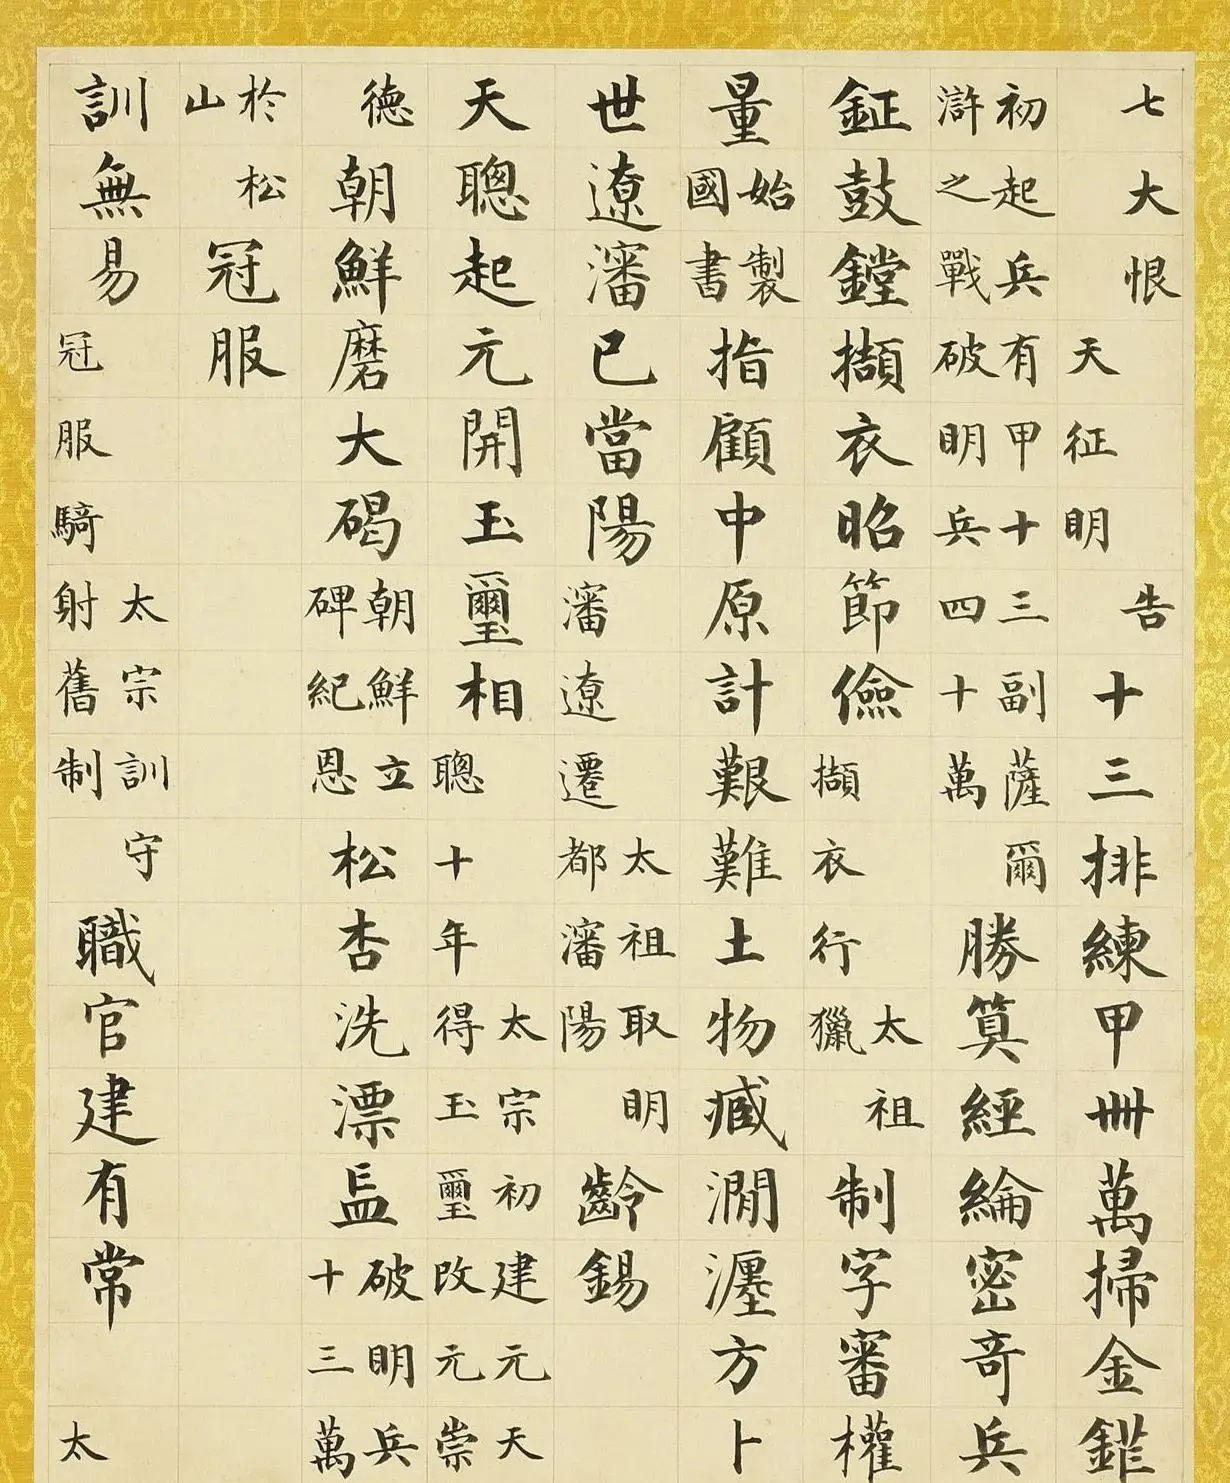 七大恨告
天征明
十三排練甲卌萬掃金
初起兵有甲十三副薩爾
滸之戰破明兵四十萬
勝算經綸密奇兵
鉦鼓鏜擷衣昭節儉
太祖
擷衣行獵
制字審權
量
始製
國書
指顧中原計艱難土物臧澗瀍方卜
世遼瀋已當陽
太祖取明
瀋遼遷都瀋陽
齡錫
天聰起元開玉璽相
太宗初建元天
聰十年得玉璽改元崇
德
朝鮮磨大碣
朝鮮立
碑紀恩
松杏洗漂
破明兵
十三萬
於松
山
冠服
訓無易
太宗訓守
冠服騎射舊制
職官建有常
太